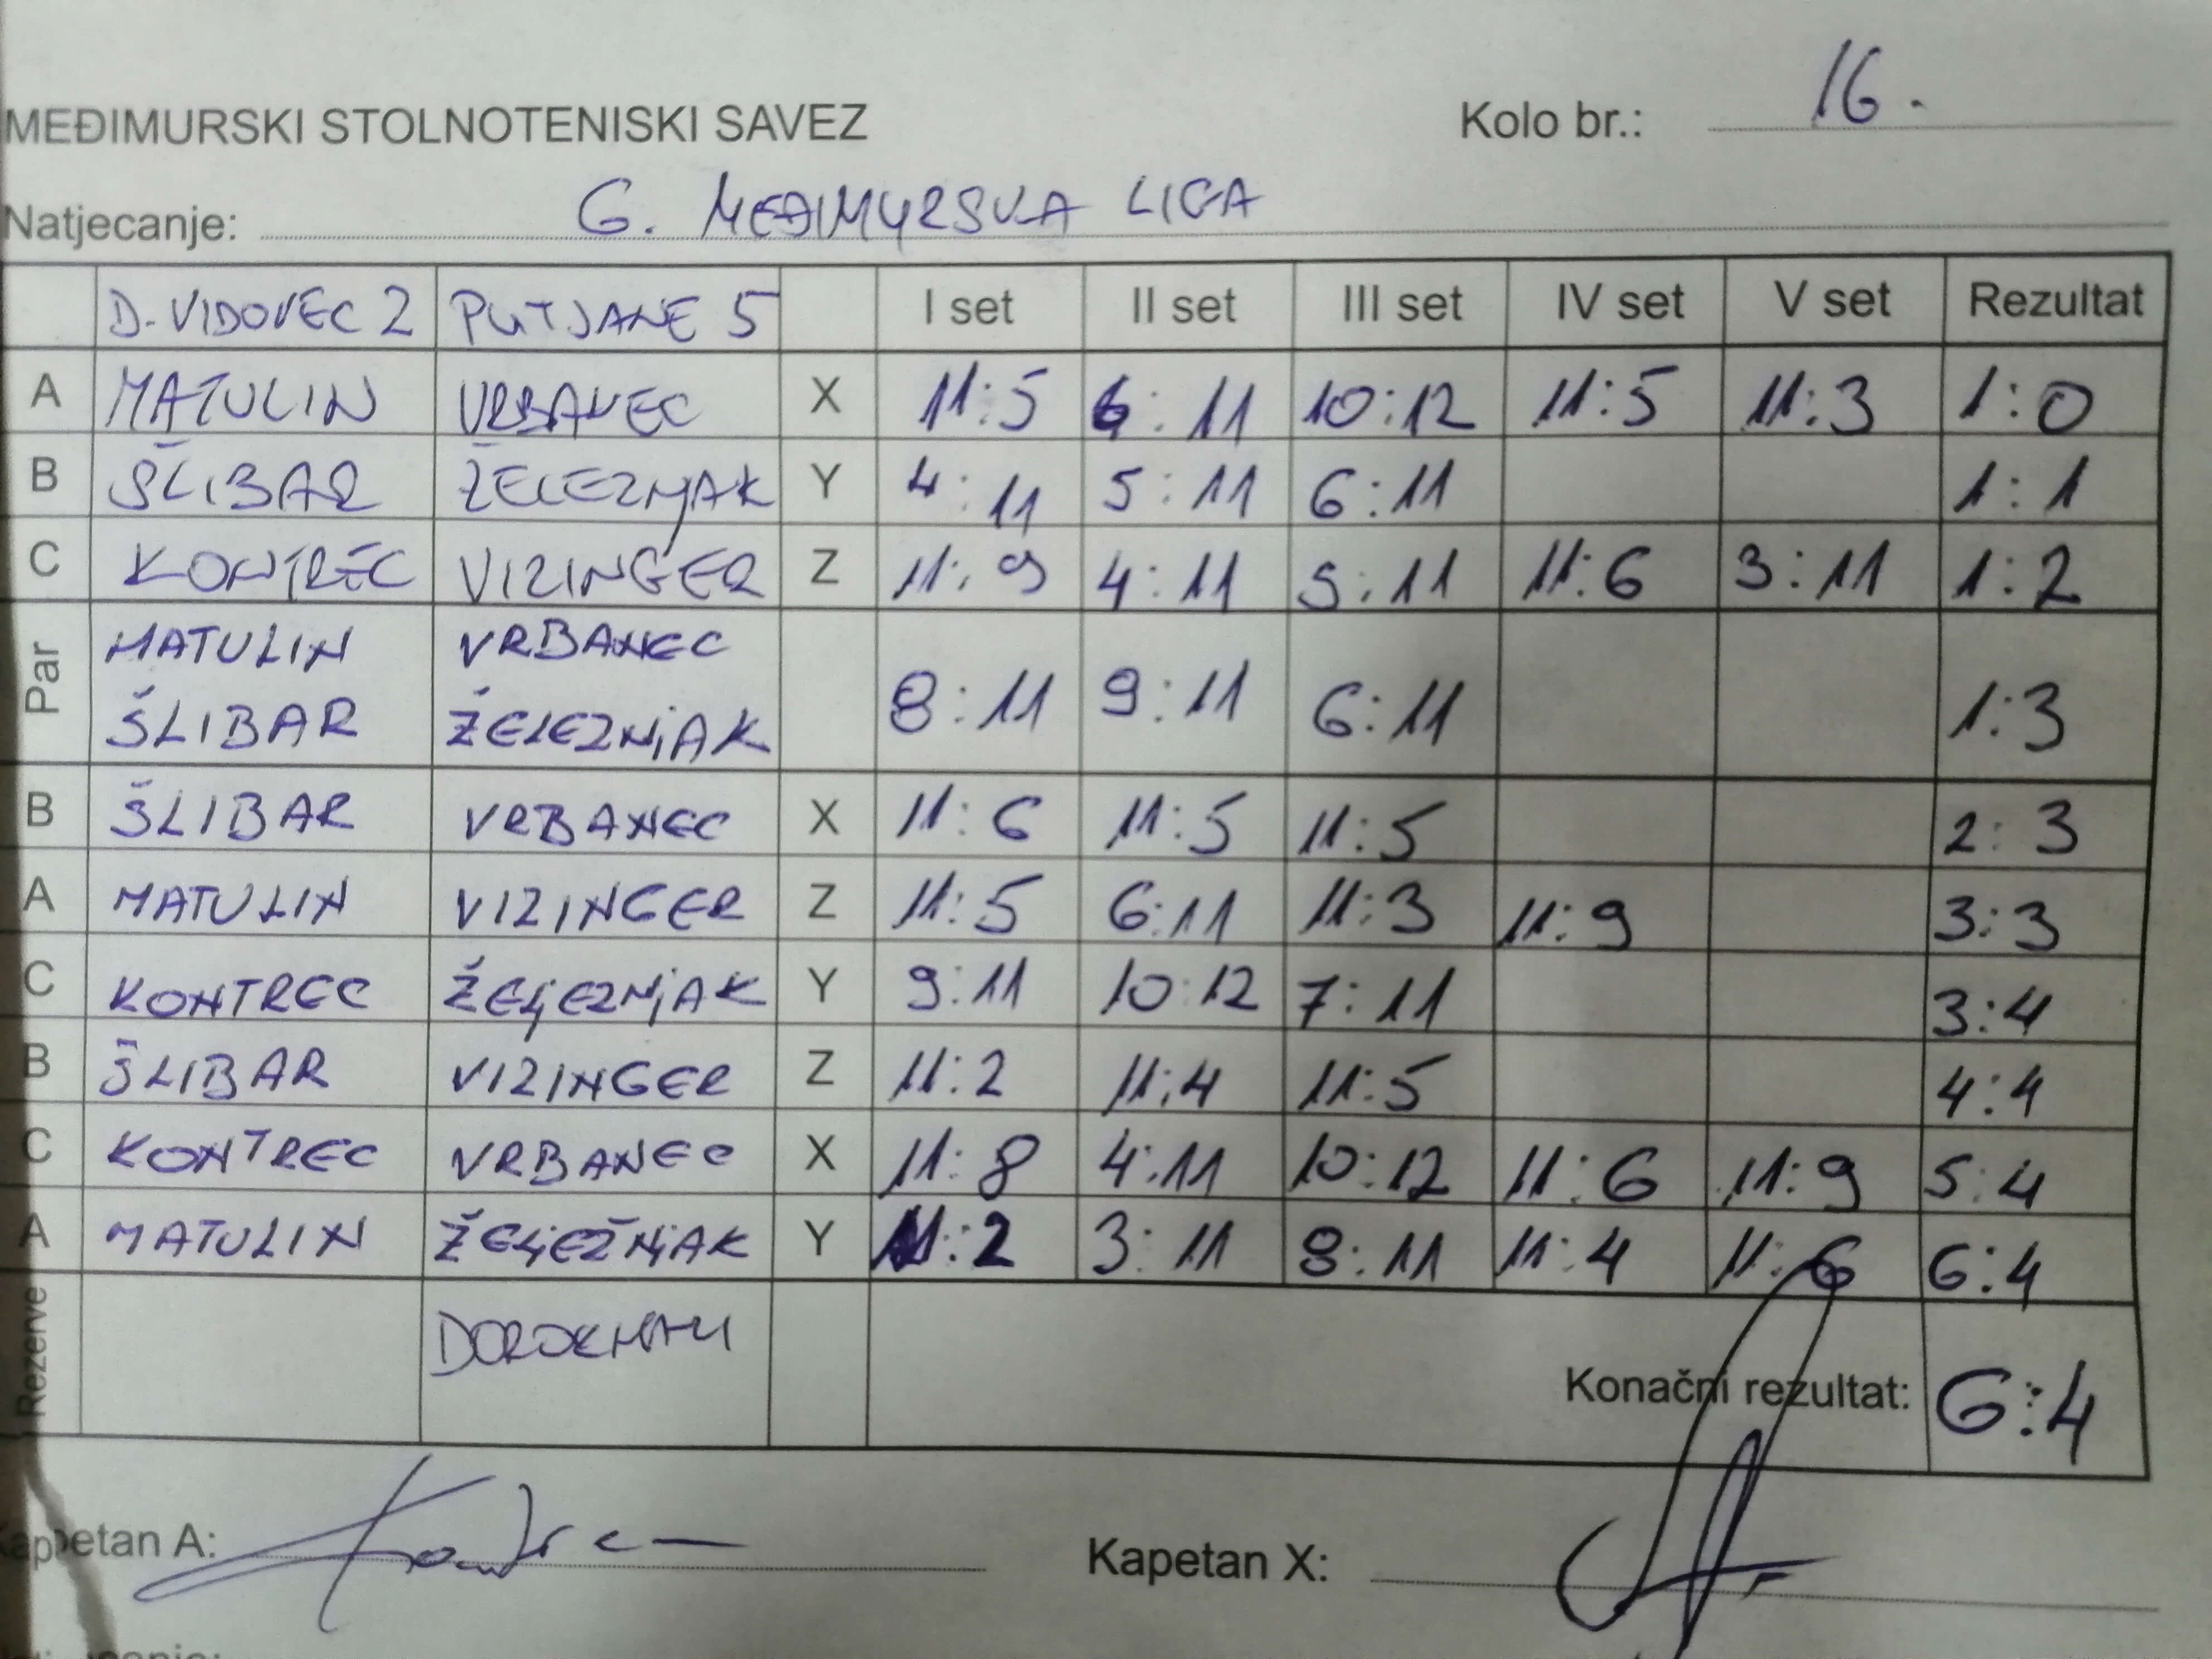 MEĐIMURSKI STOLNOTENISKI SAVEZ Kolo br.: 16.
Natjecanje: G. MEĐIMURSKA LIGA
D. VIDOVEC 2 PUTJANE 5 I set II set III set IV set V set Rezultat
A MATULIN VRBANEC X 11:5 6:11 10:12 11:5 11:3 1:0
B ŠLIBAR ŽELEZNJAK Y 4:11 5:11 6:11 1:1
C KONTREC VIZINGER Z 11:9 4:11 5:11 11:6 3:11 1:2
Par MATULIN VRBANEC
ŠLIBAR ŽELEZNJAK 8:11 9:11 6:11 1:3
B ŠLIBAR VRBANEC X 11:6 11:5 11:5 2:3
A MATULIN VIZINGER Z 11:5 6:11 11:3 11:9 3:3
C KONTREC ŽELJEZNJAK Y 9:11 10:12 7:11 3:4
B ŠLIBAR VIZINGER Z 11:2 11:4 11:5 4:4
C KONTREC VRBANEC X 11:8 4:11 10:12 11:6 11:9 5:4
A MATULIN ŽELJEŽNJAK Y 11:2 3:11 8:11 11:4 11:6 6:4
Rezerve
Konačni rezultat: 6:4
Kapetan A: Kapetan X: